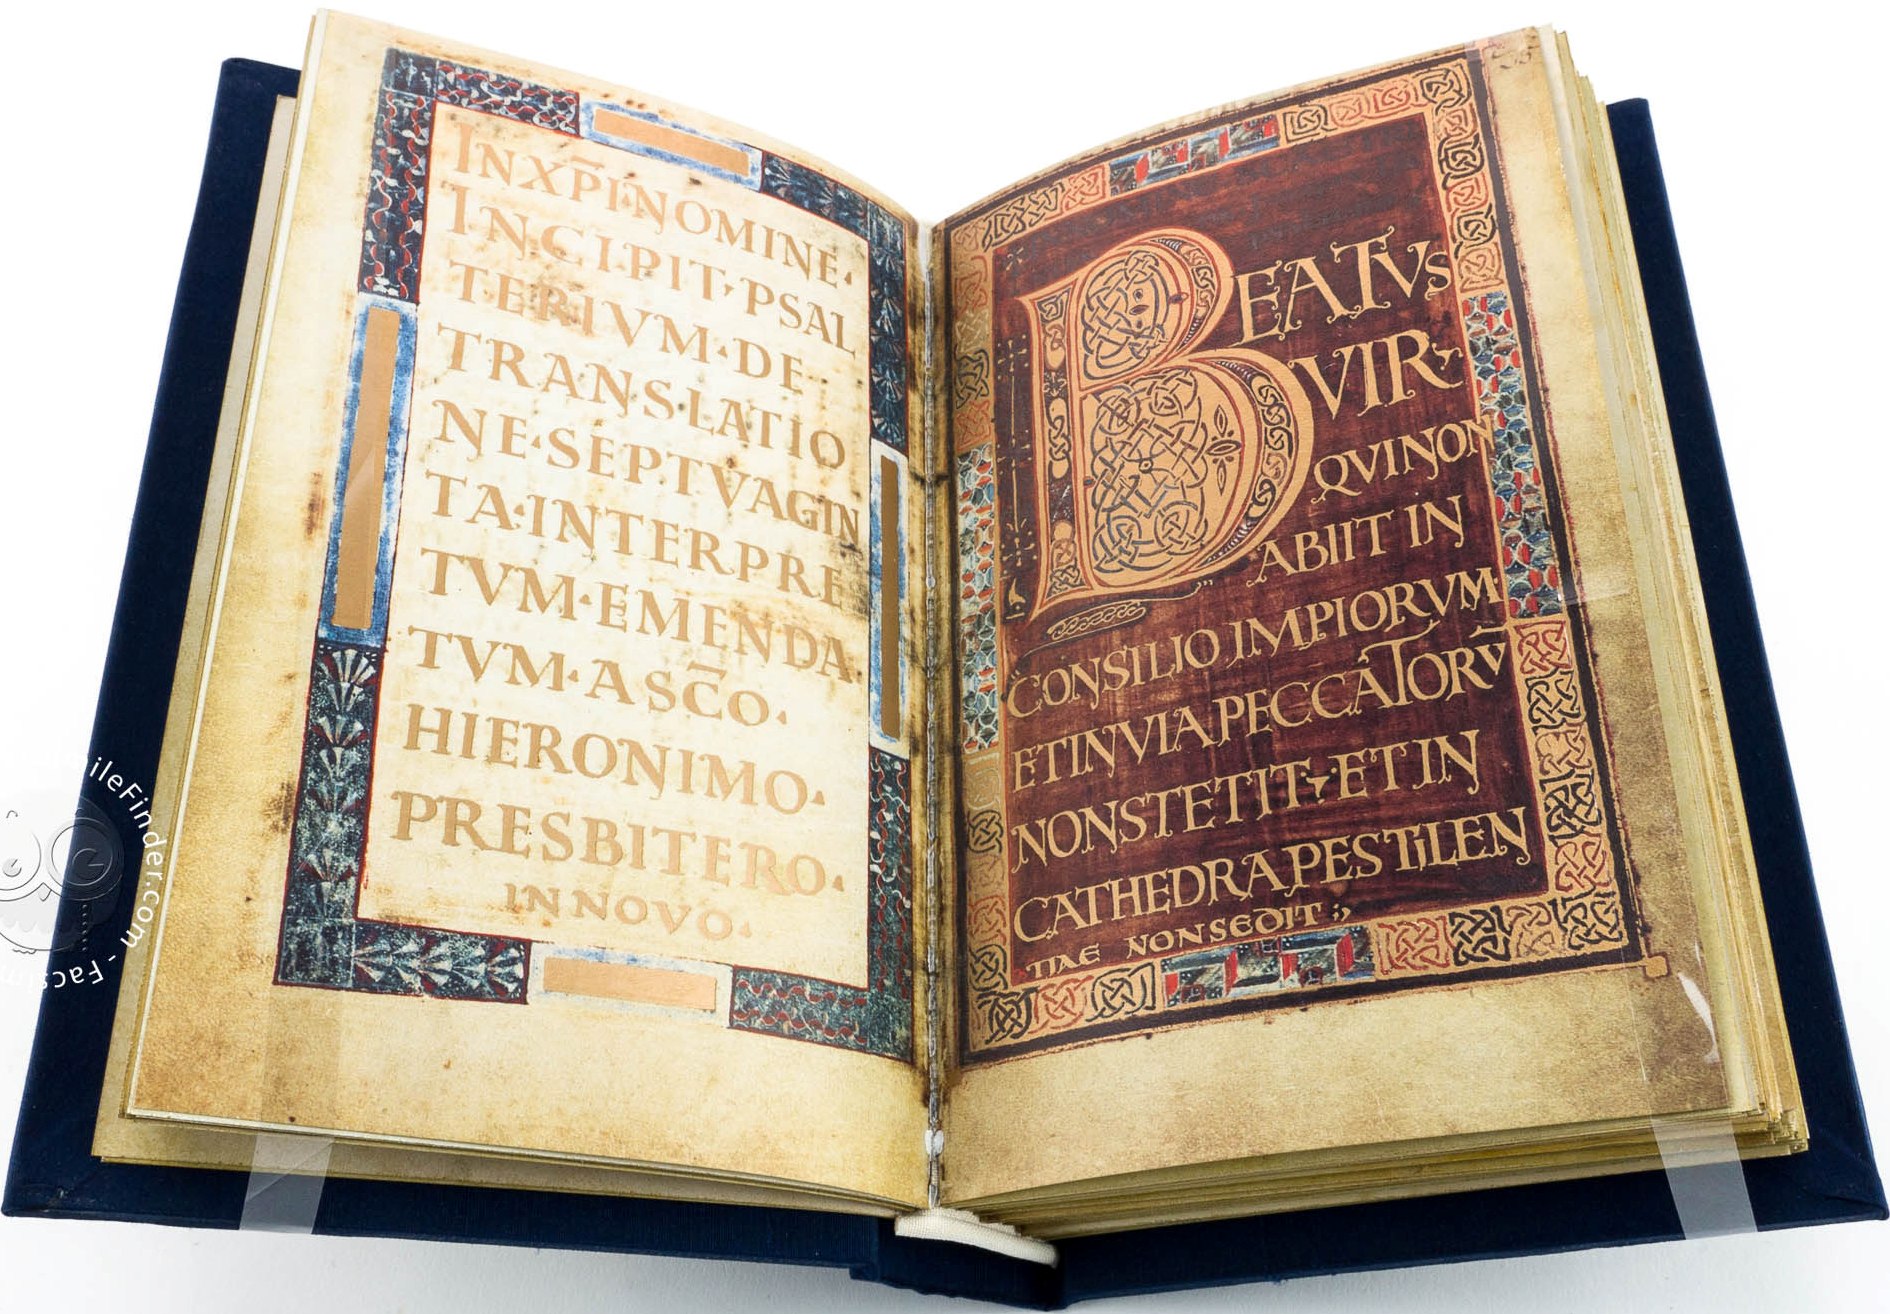 INXP̄INOMINE·
INCIPIT·PSAL
TERIVM·DE·
TRANSLATIO
NE·SEPTVAGIN
TA·INTERPRE
TVM·EMENDA
TVM·ASC̄O·
HIERONIMO·
PRESBITERO·
INNOVO·
BEATVS
VIR·
QVINON
ABIIT IN
CONSILIO IMPIORVM·
ETINVIA PECCATORV̄
NONSTETIT·ETIN
CATHEDRA PESTILEN
TIAE NONSEDIT;